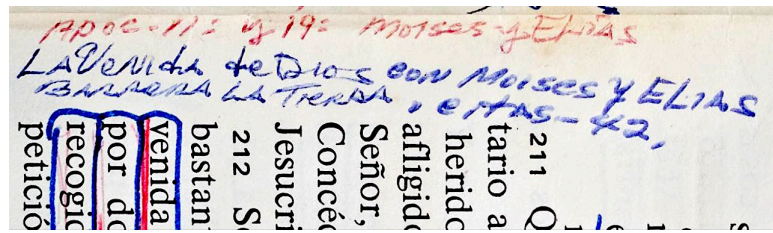 Apoc-11: y 19: Moises-y Elias
La Venida de Dios con Moises y ELIAS
BARRERA LA TIERRA,
211 Q
tario a
herido
afligido
Señor,
Concéd
Jesucri
212 Se
bastan
venida
por do
recogid
petició